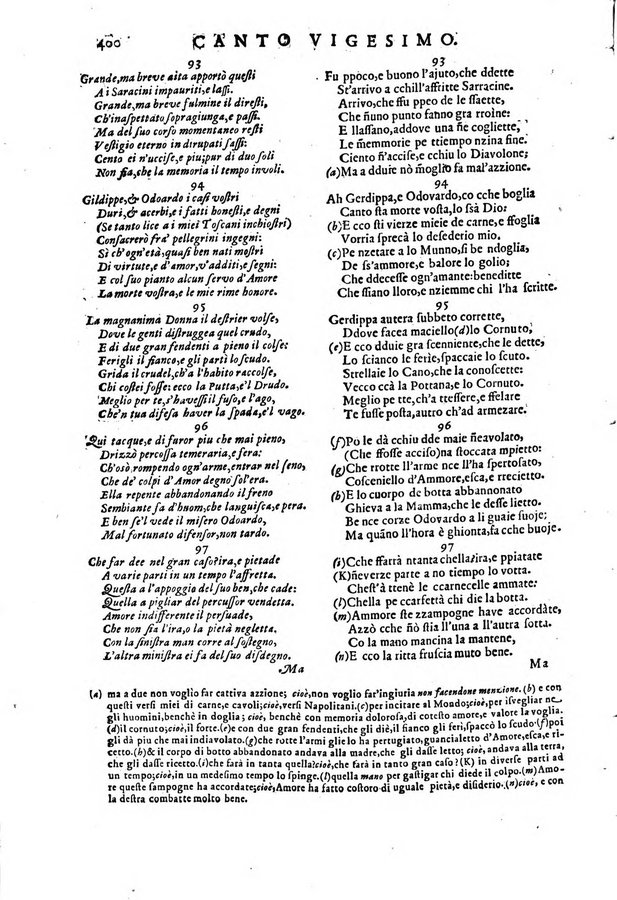 400 CANTO VIGESIMO.
93
Grande,ma breve aita apportò questi
A i Saracini impauriti,e lassi.
Grande,ma breve fulmine il diresti,
Ch'inaspettato sopragiunga,e passi.
Ma del suo corso momentaneo resti
Vestigio eterno in dirupati sassi:
Cento ei n'uccise,e piu;pur di duo soli
Non fia,che la memoria il tempo involi.
94
Gildippe,& Odoardo i casi vostri
Duri,& acerbi,e i fatti honesti,e degni
(Se tanto lice a i miei Toscani inchiostri)
Consacrerò fra' pellegrini ingegni:
Sì ch'ogn'età,quasi ben nati mostri
Di virtute,e d'amor,v'additi,e segni:
E col suo pianto alcun servo d'Amore
La morte vostra,e le mie rime honore.
95
La magnanima Donna il destrier volse,
Dove le genti distruggea quel crudo,
E di due gran fendenti a pieno il colse:
Ferigli il fianco,e gli partì lo scudo.
Grida il crudel,ch'a l'habito raccolse,
Chi costei fosse: ecco la Putta,e'l Drudo.
Meglio per te,s'havessi il fuso,e l'ago,
Che'n tua difesa haver la spada,e'l vago.
96
Qui tacque,e di furor piu che mai pieno,
Drizzò percossa temeraria,e fera:
Ch'osò,rompendo ogn'arme,entrar nel seno,
Che de' colpi d'Amor degno sol'era.
Ella repente abbandonando il freno
Sembiante fa d'huom,che languisca,e pera.
E ben se'l vede il misero Odoardo,
Mal fortunato difensor,non tardo.
97
Che far dee nel gran caso?ira,e pietade
A varie parti in un tempo l'affretta.
Questa a l'appoggio del suo ben,che cade:
Quella a pigliar del percussor vendetta.
Amore indifferente il persuade,
Che non sia l'ira,o la pietà negletta.
Con la sinistra man corre al sostegno,
L'altra ministra ei fa del suo disdegno.
Ma
93
Fu ppoco,e buono l'ajuto,che ddette
St'arrivo a cchill'affritte Sarracine.
Arrivo,che ffu ppeo de le ssaette,
Che ñuno punto fanno gra rroine:
E llassano,addove una ñe cogliette,
Le mẽmmorie pe ttiempo nzina fine.
Ciento ñ'accise,e cchiu lo Diavolone;
(a)Ma a dduie nò mõglio fa mal'azzione.
94
Ah Gerdippa,e Odovardo,co cche boglia
Canto sta morte vosta,lo ssà Dio:
(b)E cco sti vierze mieie de carne,e ffoglia
Vorria sprecà lo desederio mio.
(c)Pe nzetare a lo Munno,si be ndoglia,
De ss'ammore,e balore lo golio;
Che ddecesse ogn'amante:beneditte
Che ssiano lloro,e nziemme chi l'ha scritte.
95
Gerdippa autera subbeto corrette,
Ddove facea maciello(d)lo Cornuto;
(e)E cco dduie gra scenniente,che le dette,
Lo scianco le ferìe,spaccaie lo scuto.
Strellaie lo Cano,che la conoscette:
Vecco ccà la Pottana,e lo Cornuto.
Meglio pe tte,c'havisse,e ffelare
Te fusse posta,autro ch'ad armezare.
96
(f)Po le dà cchiu dde maie ñeavolato,
(Cche ffosse acciso)na stoccata mpietto:
(g)Che rrotte ll'arme nce ll'ha spertosato,
Cosceniello d'Ammore,esca,e rrecietto.
(h)E lo cuorpo de botta abbannonato
Ghieva a la Mamma,che le desse lietto.
Be nce corze Odovardo a li guaie suoje;
Ma quãno ll'hora è ghionta,fa cche buoje.
97
(i)Cche ffarrà ntanta chella?ira,e ppiatate
(K)ñeverze parte a no tiempo lo votta.
Chest'à ttenere le ccarnecelle ammate:
(l)Chella pe ccarfettà chi die la botta.
(m)Ammore ste zzampogne have accordàte,
Azzò cche ñò stia ll'una a ll'autra sotta.
Co la mano mancina la mantene,
(n)E cco la ritta fruscia muto bene.
Ma
(a) ma a due non voglio far cattiva azzione; cioè,non voglio far'ingiuria non facendone menzione.(b) e con
questi versi miei di carne,e cavoli;cioè,versi Napolitani.(c)per incitare al Mondo;cioè,per isvegliar ne-
gli huomini,benchè in doglia; cioè, benchè con memoria dolorosa,di cotesto amore,e valore la voglia.
(d)il cornuto;cioè,il forte.(e)e con due gran fendenti,che gli diè,il fianco gli ferì,spaccò lo scudo(f)poi
gli dà piu che mai indiavolato.(g)che rotte l'armi glielo ha pertugiato,guancialetto d'Amore,esca,e ri-
cetto.(h)& il corpo di botto abbandonato andava alla madre,che gli dasse letto; cioè, andava alla terra,
che gli dasse ricetto.(i)che farà in tanta quella?cioè,che farà in tanto gran caso?(K) in diverse parti ad
un tempo;cioè,in un medesimo tempo lo spinge.(l)quella mano per gastigar chi diede il colpo.(m)Amo-
re queste sampogne ha accordate;cioè,Amore ha fatto costoro di uguale pietà,e disiderio.(n)cioè, e con
la destra combatte molto bene.